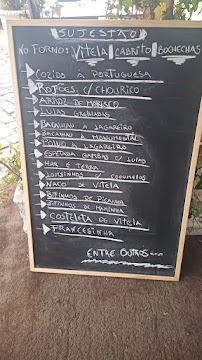 SUJESTÃO
NO FORNO: VITELA CABRITO BOCHECHAS
COZIDO À PORTUGUESA
ROJÕES C/ CHOURIÇO
ARROZ DE MARISCO
LULAS GRELHADAS
BACALHAU À LAGAREIRO
BACALHAU À MONUMENTAL
POLVO À LAGAREIRO
ESPETADA GAMBAS C/ LULAS
MAR E TERRA
LOMBINHOS C/ COGUMELOS
NACO DE VITELA
BIFINHOS DE PICANHA
DE MAMINHA
COSTELETA DE VITELA
FRANCESINHA
ENTRE OUTROS...